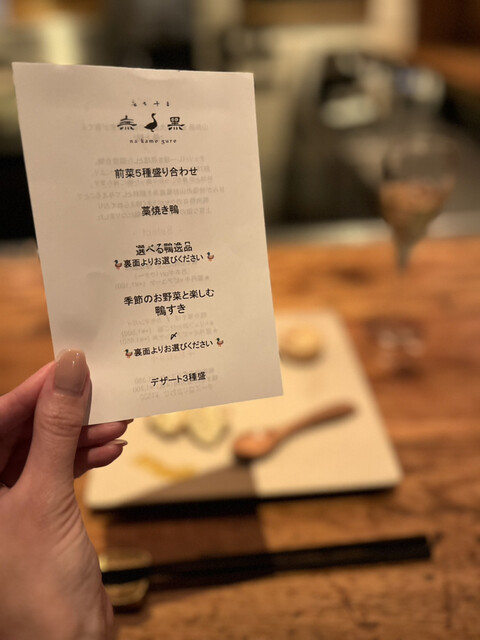 黒
no kamo guro
前菜5種盛り合わせ
藁焼き鴨
選べる鴨逸品
裏面よりお選びください
季節のお野菜と楽しむ
鴨すき
〆
裏面よりお選びください
デザート3種盛